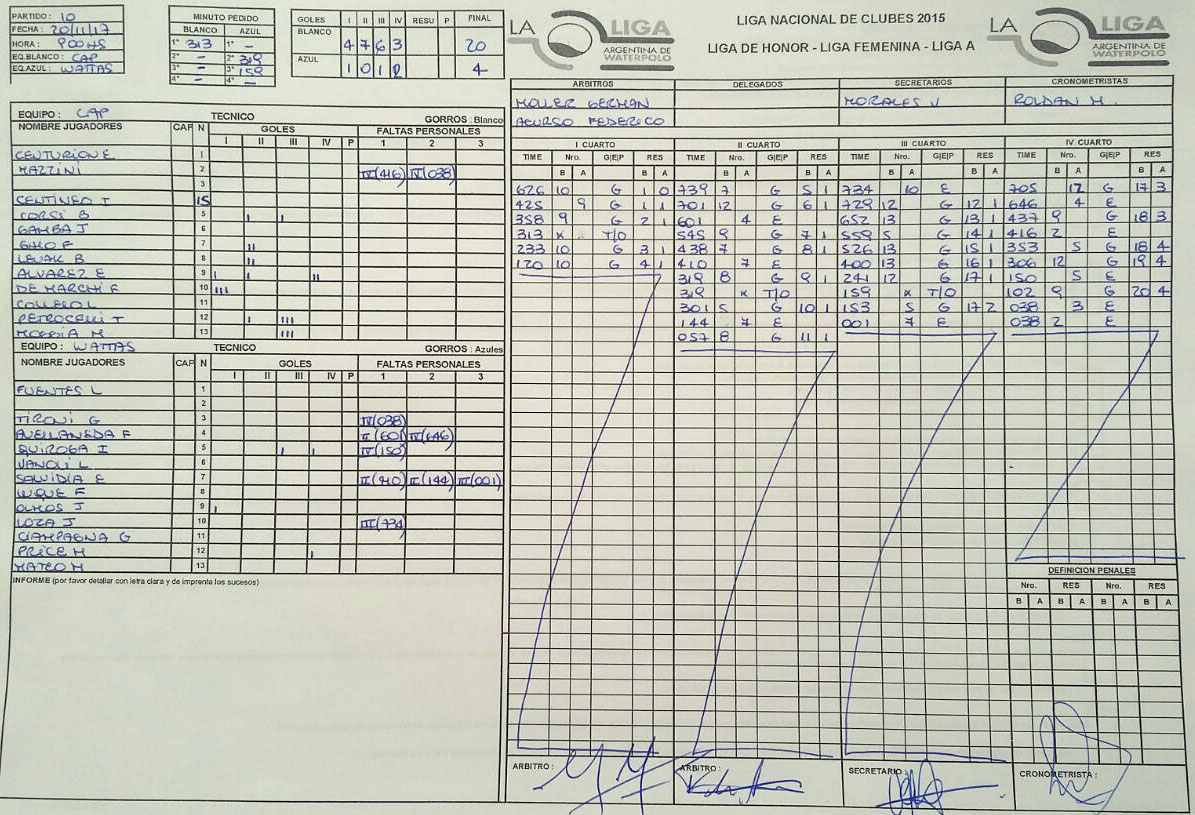 PARTIDO: 10
FECHA: 20/11/17
HORA: 900HS
EQ.BLANCO: CAP
EQ.AZUL: WATTAS
MINUTO PEDIDO
BLANCO AZUL
1° 313 1° -
2° - 2° 319
3° - 3° 159
4° - 4° -
GOLES I II III IV RESU P FINAL
BLANCO 4 7 6 3 20
AZUL 1 0 1 2 4
LA LIGA
ARGENTINA DE WATERPOLO
LIGA NACIONAL DE CLUBES 2015
LIGA DE HONOR - LIGA FEMENINA - LIGA A
LA LIGA
ARGENTINA DE WATERPOLO
ARBITROS DELEGADOS SECRETARIOS CRONOMETRISTAS
MOLLER GERMAN MORALES V ROLDAN M.
ACURSO FEDERICO
EQUIPO: CAP TECNICO GORROS: Blanco
NOMBRE JUGADORES CAP N GOLES FALTAS PERSONALES
I II III IV P 1 2 3
CENTURION E 1
MAZZINI 2 IV(416) IV(038)
3
CENTINEO T 15
CORSI B 5 I I
GAMBA J 6
GHIO F 7 II
LEVAK B 8 II
ALVAREZ E 9 I I II
DE MARCHI F 10 III
COLLESO L 11
PETROCELLI T 12 I III I
MOGGIA M 13 III
EQUIPO: WATTAS TECNICO GORROS: Azules
NOMBRE JUGADORES CAP N GOLES FALTAS PERSONALES
I II III IV P 1 2 3
FUENTES L 1
2
TIRONI G 3 IV(038)
AVELLANEDA F 4 II(601) IV(646)
QUIROGA I 5 I I IV(150)
VANOLI L 6
SALVIDIA E 7 II(410) II(144) III(001)
LUQUE F 8
OLMOS J 9 I
LOZA J 10 III(734)
CIAMPAGNA G 11
PRICE M 12 I
MATEO M 13
INFORME (por favor detallar con letra clara y de imprenta los sucesos)
I CUARTO
TIME Nro. G|E|P RES
B A B A
626 10 G 1 0
425 9 G 1 1
358 9 G 2 1
313 x T/O
233 10 G 3 1
120 10 G 4 1
II CUARTO
TIME Nro. G|E|P RES
B A B A
739 7 G 5 1
701 12 G 6 1
601 4 E
545 9 G 7 1
438 7 G 8 1
410 7 E
319 8 G 9 1
319 x T/O
301 5 G 10 1
144 7 E
057 8 G 11 1
III CUARTO
TIME Nro. G|E|P RES
B A B A
734 10 E
729 12 G 12 1
652 13 G 13 1
559 5 G 14 1
526 13 G 15 1
400 13 G 16 1
241 12 G 17 1
159 x T/O
153 5 G 17 2
001 7 E
IV CUARTO
TIME Nro. G|E|P RES
B A B A
705 12 G 17 3
646 4 E
437 9 G 18 3
416 2 E
353 5 G 18 4
306 12 G 19 4
150 5 E
102 9 G 20 4
038 3 E
038 2 E
DEFINICION PENALES
Nro. RES Nro. RES
B A B A B A B A
ARBITRO: ARBITRO: SECRETARIO: CRONOMETRISTA: